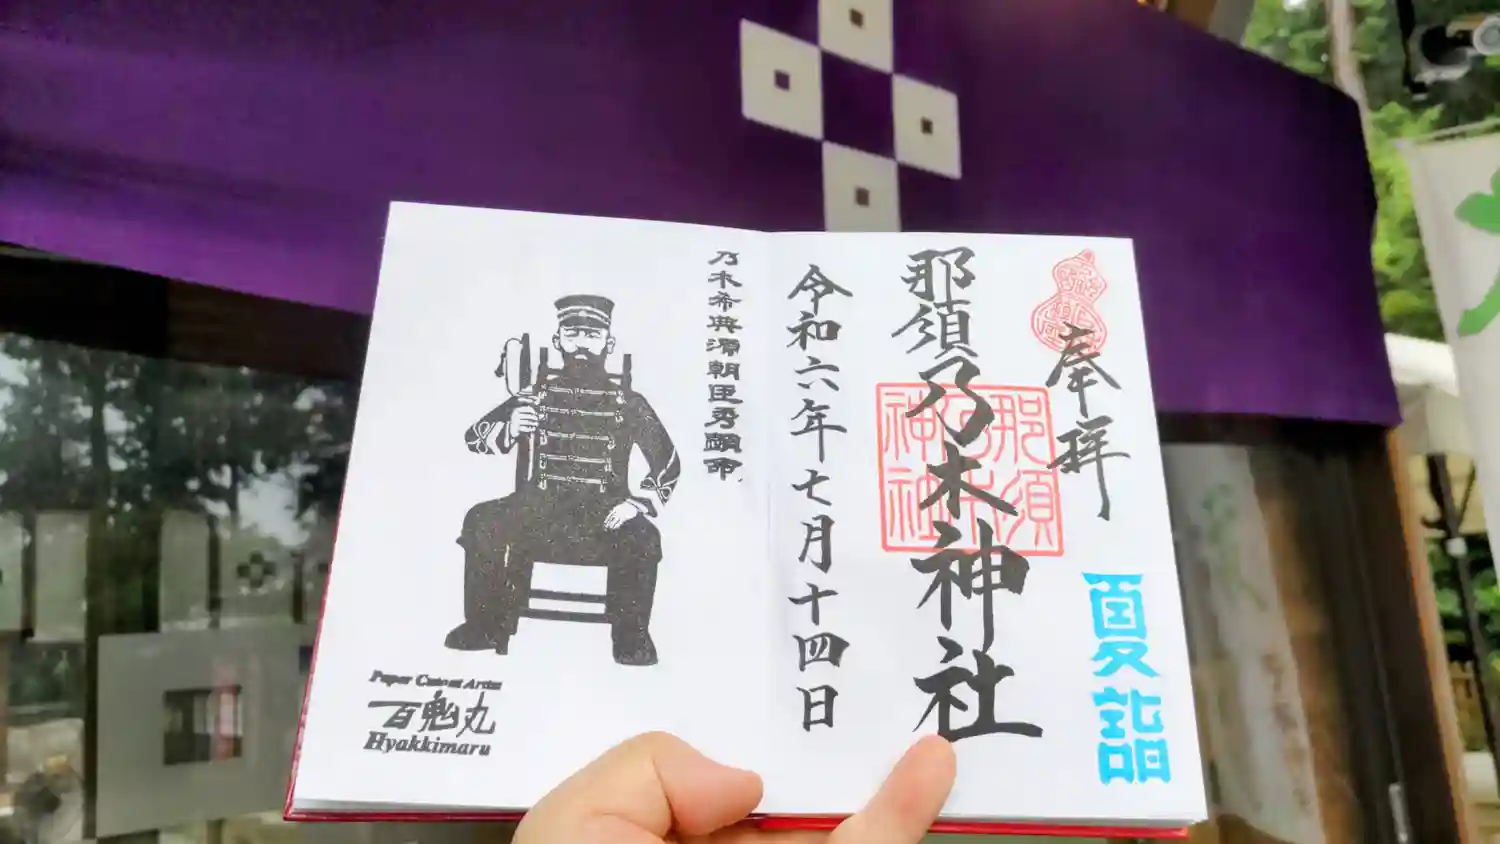 奉拝
夏詣
那須乃木神社
那須
乃木
神社
令和六年七月十四日
乃木希典源朝臣秀顯命
Paper Cutout Artist
百鬼丸
Hyakkimaru